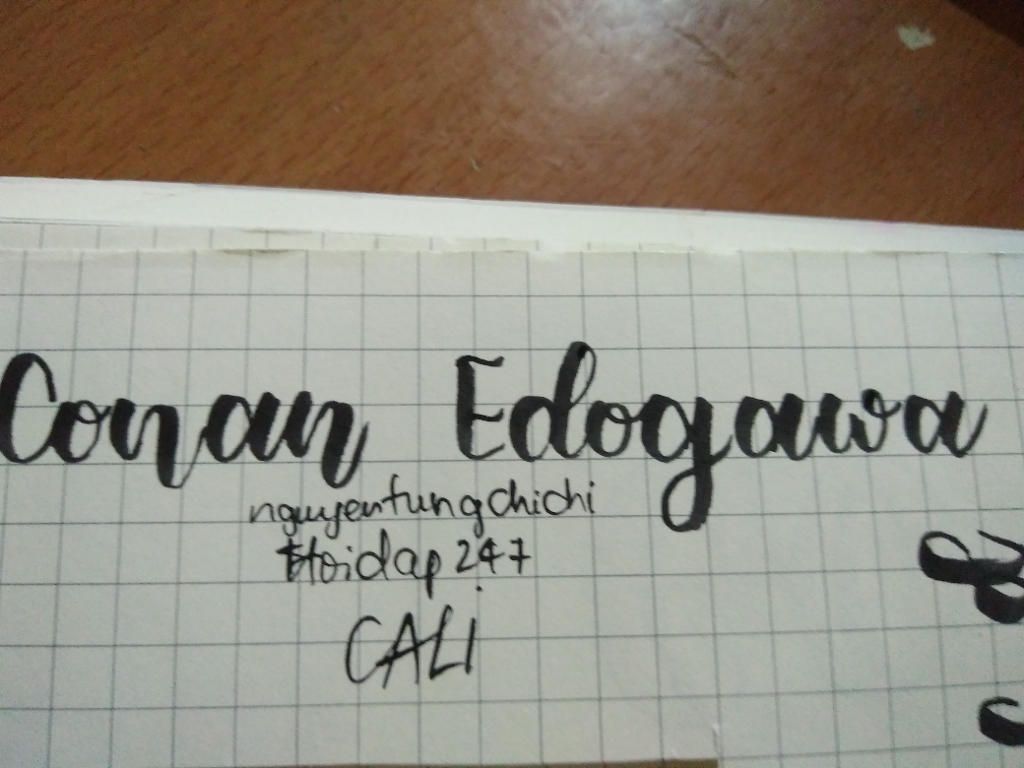 Conan Edogawa
nguyentungchichi
Hoidap247
CALI